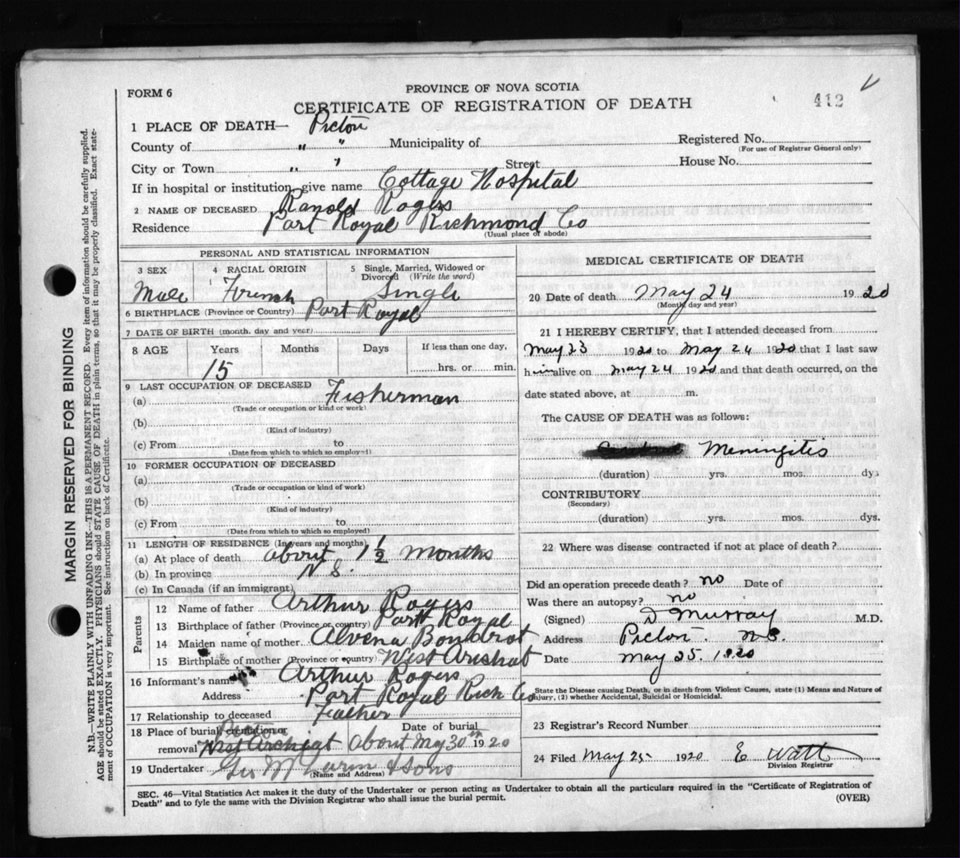 PROVINCE OF NOVA SCOTIA
FORM 6
CERTIFICATE OF REGISTRATION OF DEATH
412
1 PLACE OF DEATH— Pictou
County of " " Municipality of Registered No.
(For use of Registrar General only)
City or Town " " Street House No.
If in hospital or institution, give name Cottage Hospital
2 NAME OF DECEASED Ranold Rogers
Residence Port Royal Richmond Co
(Usual place of abode)
PERSONAL AND STATISTICAL INFORMATION
3 SEX 4 RACIAL ORIGIN 5 Single, Married, Widowed or Divorced (Write the word)
Male French Single
6 BIRTHPLACE (Province or Country) Port Royal
7 DATE OF BIRTH (month, day and year)
8 AGE Years Months Days If less than one day,
15 hrs. or min.
9 LAST OCCUPATION OF DECEASED
(a) Fisherman
(Trade or occupation or kind of work)
(b)
(Kind of industry)
(c) From to
(Date from which to which so employed)
10 FORMER OCCUPATION OF DECEASED
(a)
(Trade or occupation or kind of work)
(b)
(Kind of industry)
(c) From to
(Date from which to which so employed)
11 LENGTH OF RESIDENCE (In years and months)
(a) At place of death about 1½ months
(b) In province N S.
(c) In Canada (if an immigrant)
Parents
12 Name of father Arthur Rogers
13 Birthplace of father (Province or country) Port Royal
14 Maiden name of mother Alvena Boudrot
15 Birthplace of mother (Province or country) West Arichat
16 Informant's name Arthur Rogers
Address Port Royal Rich Co
17 Relationship to deceased Father
18 Place of burial, cremation or Date of burial
removal West Arichat About May 30th 1920
19 Undertaker & Sons
(Name and Address)
MEDICAL CERTIFICATE OF DEATH
20 Date of death May 24 1920
(Month, day and year)
21 I HEREBY CERTIFY, that I attended deceased from
May 23 1920 to May 24 1920 that I last saw
him alive on May 24 1920 and that death occurred, on the
date stated above, at m.
The CAUSE OF DEATH was as follows:
Meningitis
(duration) yrs. mos. dys
CONTRIBUTORY
(Secondary)
(duration) yrs. mos. dys.
22 Where was disease contracted if not at place of death?
Did an operation precede death? no Date of
Was there an autopsy? no
(Signed) D Murray M.D.
Address Pictou. N.S.
Date May 25. 1920
State the Disease causing Death, or in death from Violent Causes, state (1) Means and Nature of
Injury, (2) whether Accidental, Suicidal or Homicidal.
23 Registrar's Record Number
24 Filed May 25 1920 E Watt
Division Registrar
SEC. 46—Vital Statistics Act makes it the duty of the Undertaker or person acting as Undertaker to obtain all the particulars required in the "Certificate of Registration of
Death" and to fyle the same with the Division Registrar who shall issue the burial permit.
(OVER)
MARGIN RESERVED FOR BINDING
N.B.—WRITE PLAINLY WITH UNFADING INK—THIS IS A PERMANENT RECORD. Every item of information should be carefully supplied.
AGE should be stated EXACTLY. PHYSICIANS should STATE CAUSE OF DEATH in plain terms, so that it may be properly classified. Exact state-
ment of OCCUPATION is very important. See instructions on back of Certificate.